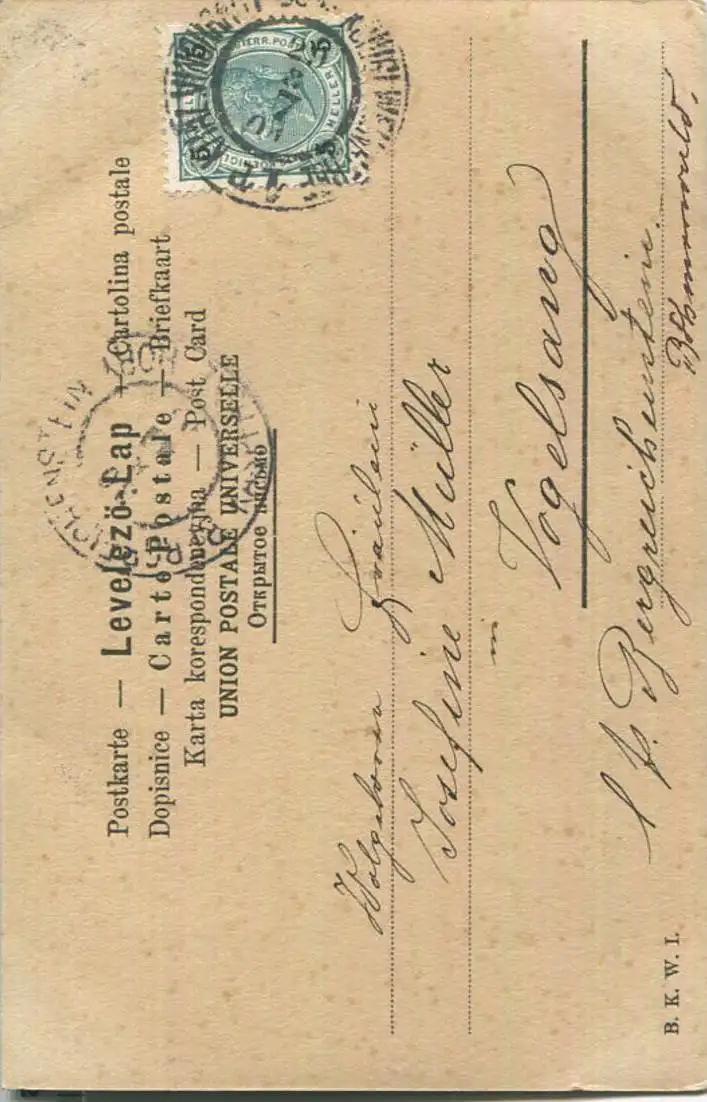 Postkarte — Levelezö-Lap — Cartolina postale
Dopisnice — Carte Postale — Briefkaart
Karta korespondencyjna — Post Card
UNION POSTALE UNIVERSELLE
Открытое письмо
Wolgeboren Fräulein
Josefine Müller
in
Vogelsang
Bergreichenstein.
Böhmerwald.
B. K. W. I.